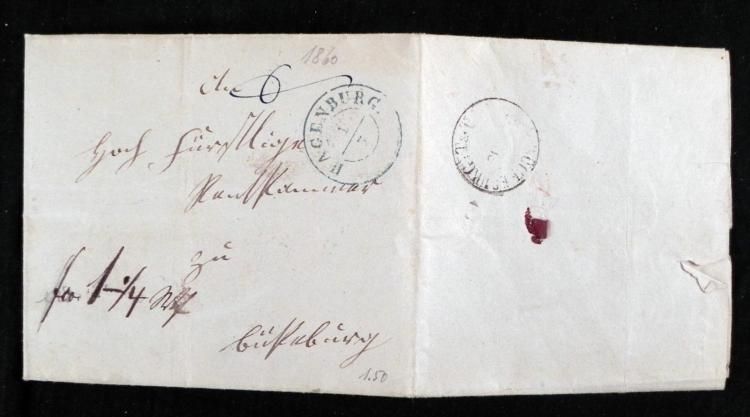 1860
An
HAGENBURG.
Hoch Fürstlige
Rentkammer
zu
fro. 1 1/4
Bükeburg
1.50